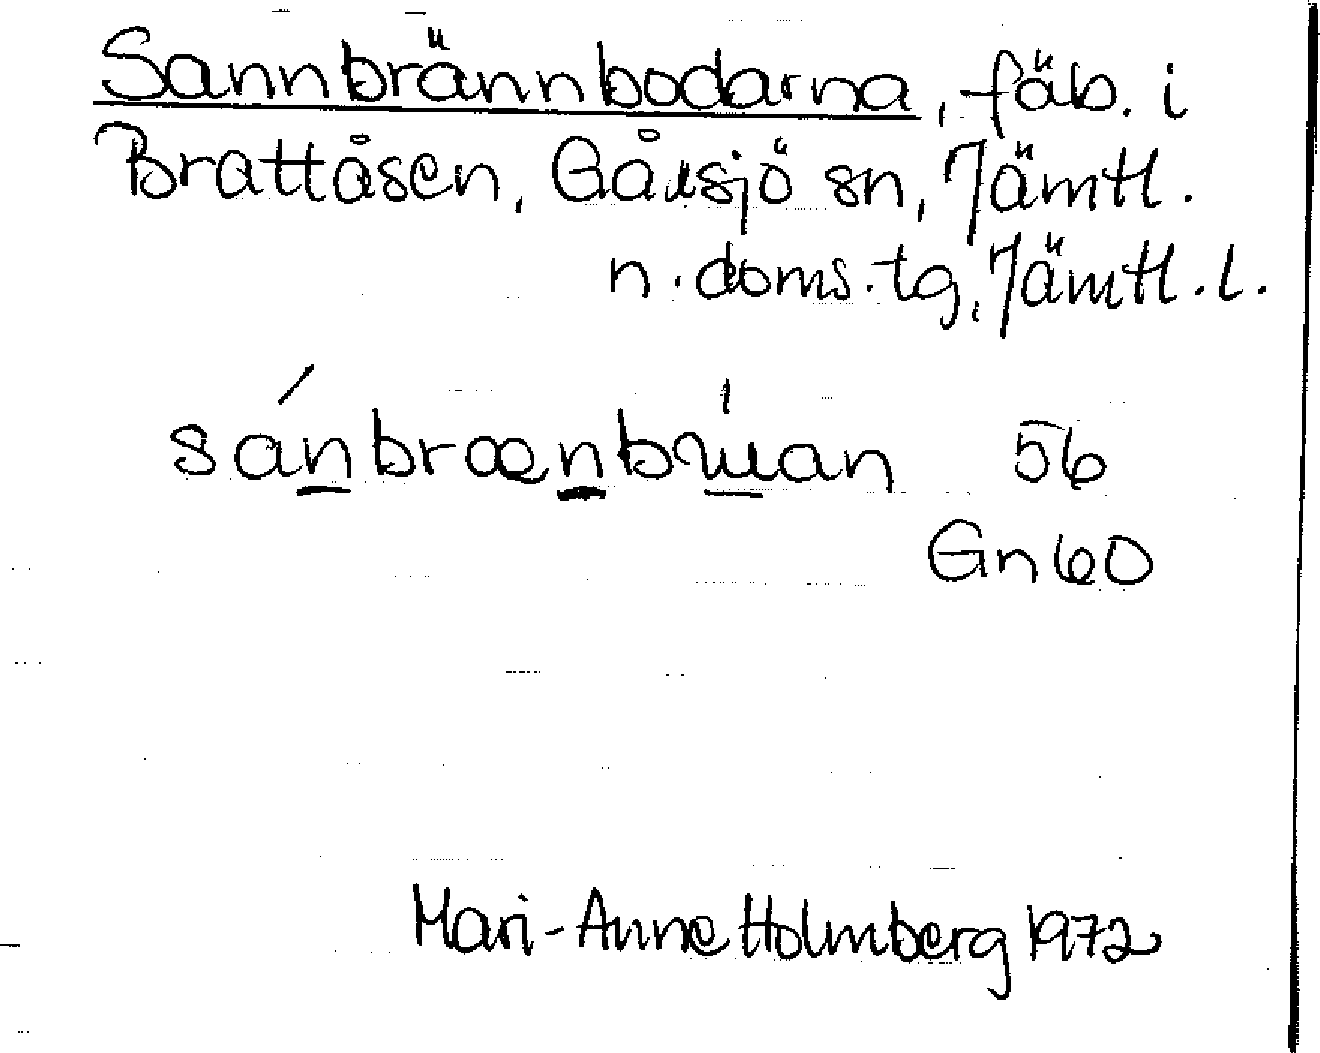 Sannbrännbodarna, fäb. i
Brattåsen, Gåxsjö sn, Jämtl.
n. doms. tg, Jämtl. l.
56
Gn 60
Mari-Anne Holmberg 1972